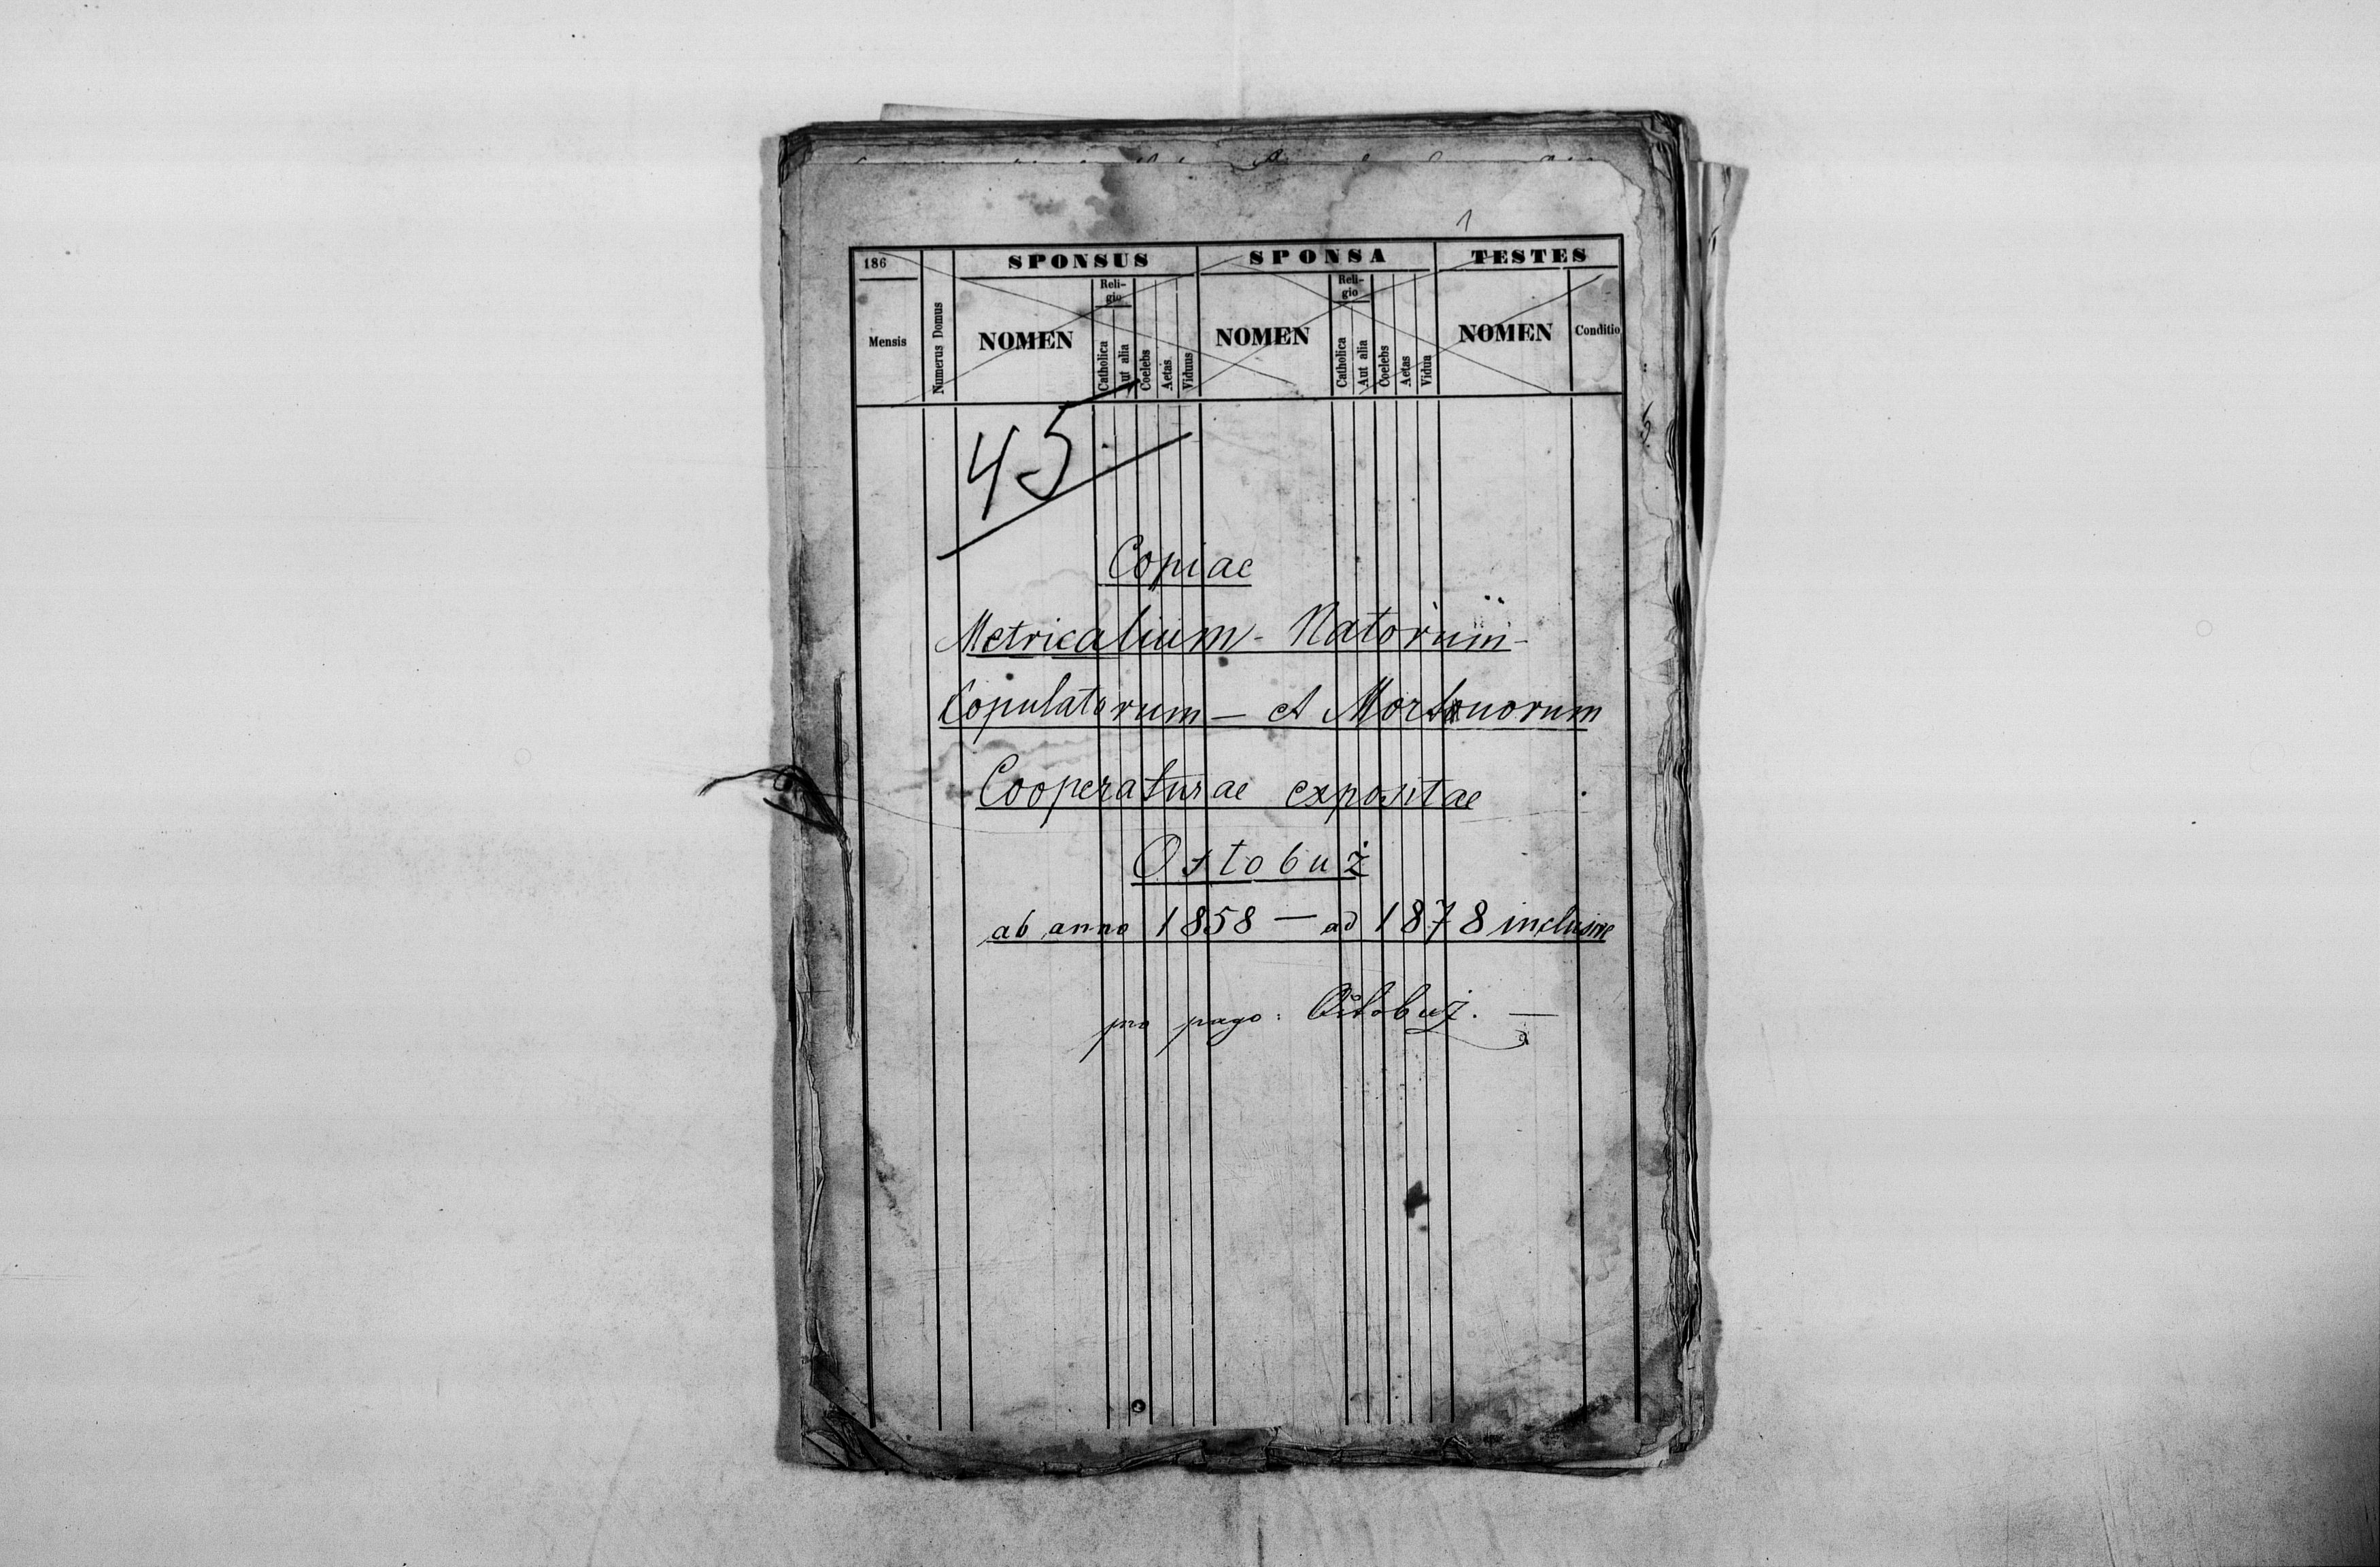 1
186 SPONSUS SPONSA TESTES
Reli-
gio
Reli-
gio
Mensis Numerus Domus NOMEN Catholica Aut alia Coelebs Aetas Viduus NOMEN Catholica Aut alia Coelebs Aetas Vidua NOMEN Conditio
45
Copiae
Metricalium - Natorum -
Copulatorum — et Mortuorum
Cooperaturae expositae
Ostobuż
ab anno 1858 — ad 1878 inclusive
pro pago: Ostobuż. —